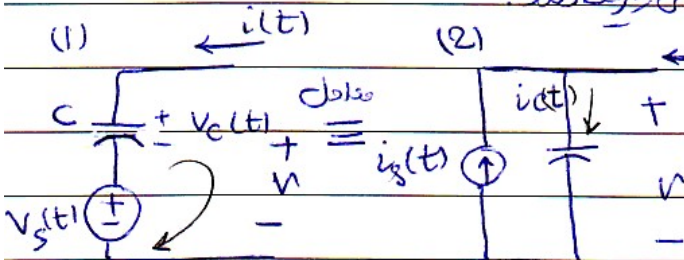 (1) i(t) (2)
C + - Vc(t) معادل ic(t) +
≡ is(t)
+ V - V -
Vs(t) + -